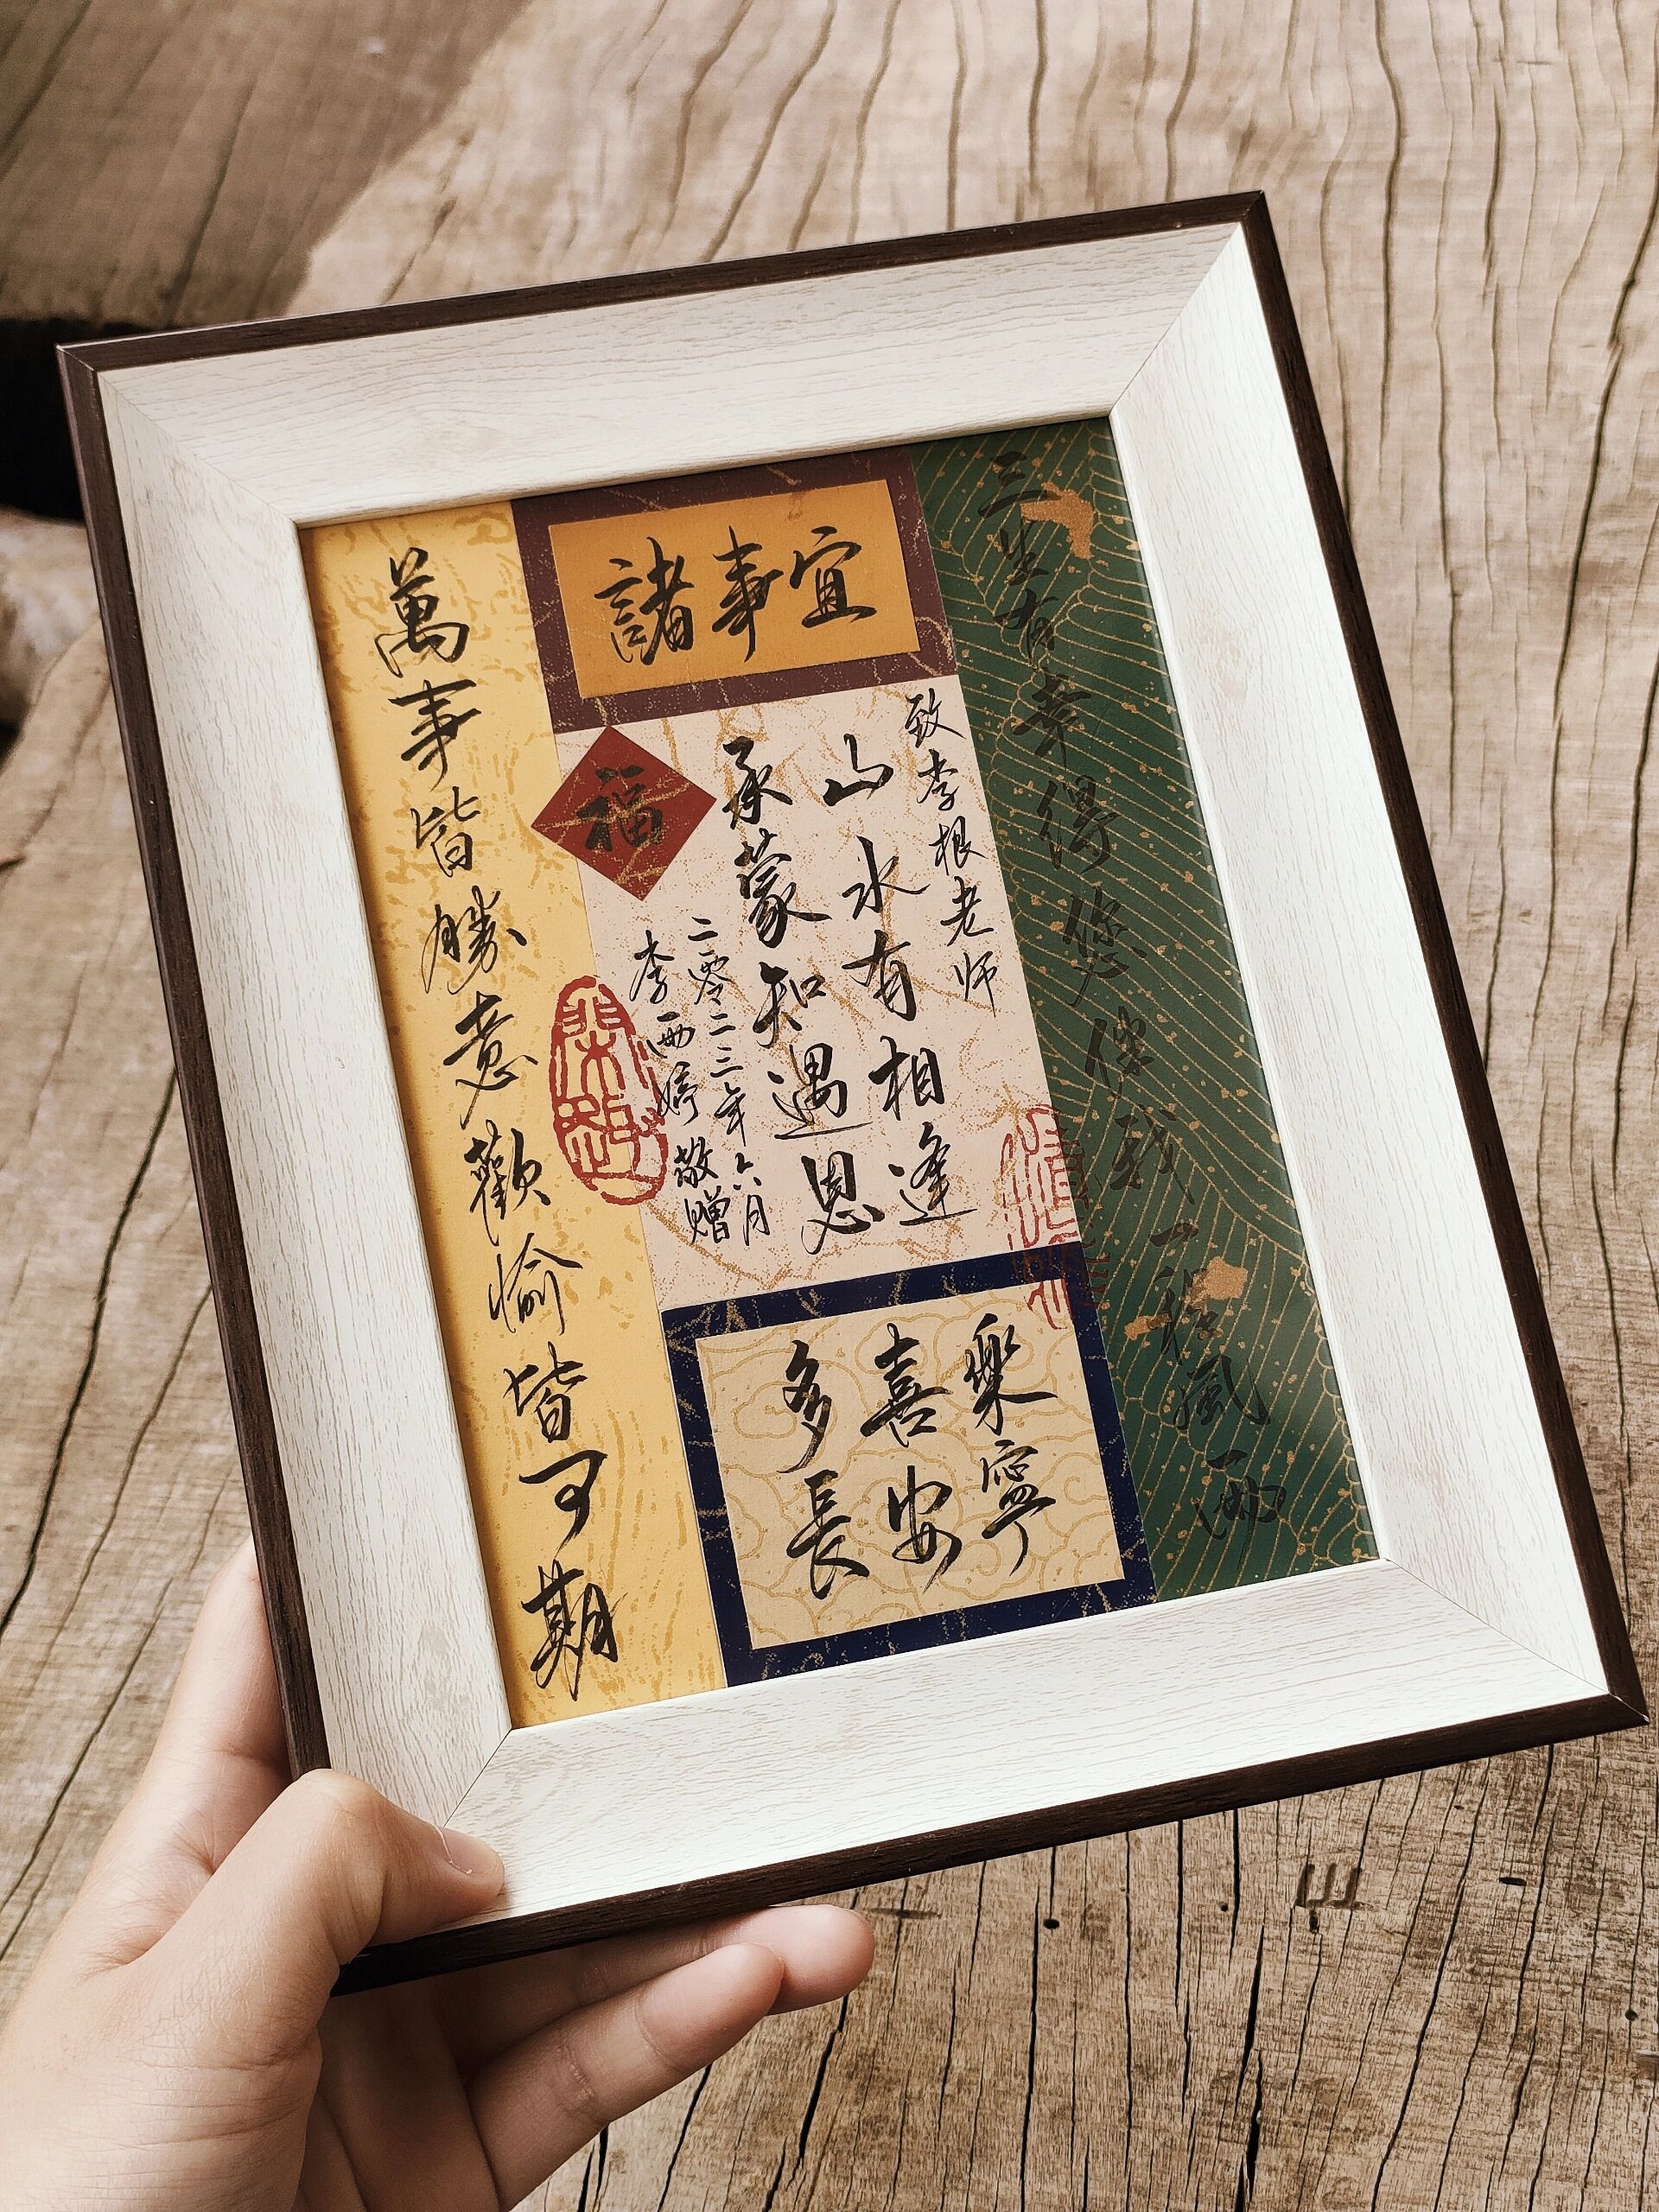 三生有幸得您我一程風雨
諸事宜
致李根老师
山水有相逢
承蒙知遇恩
二零二三年六月
李西婷敬赠
福
多喜樂
長安寧
萬事皆勝意歡愉皆可期